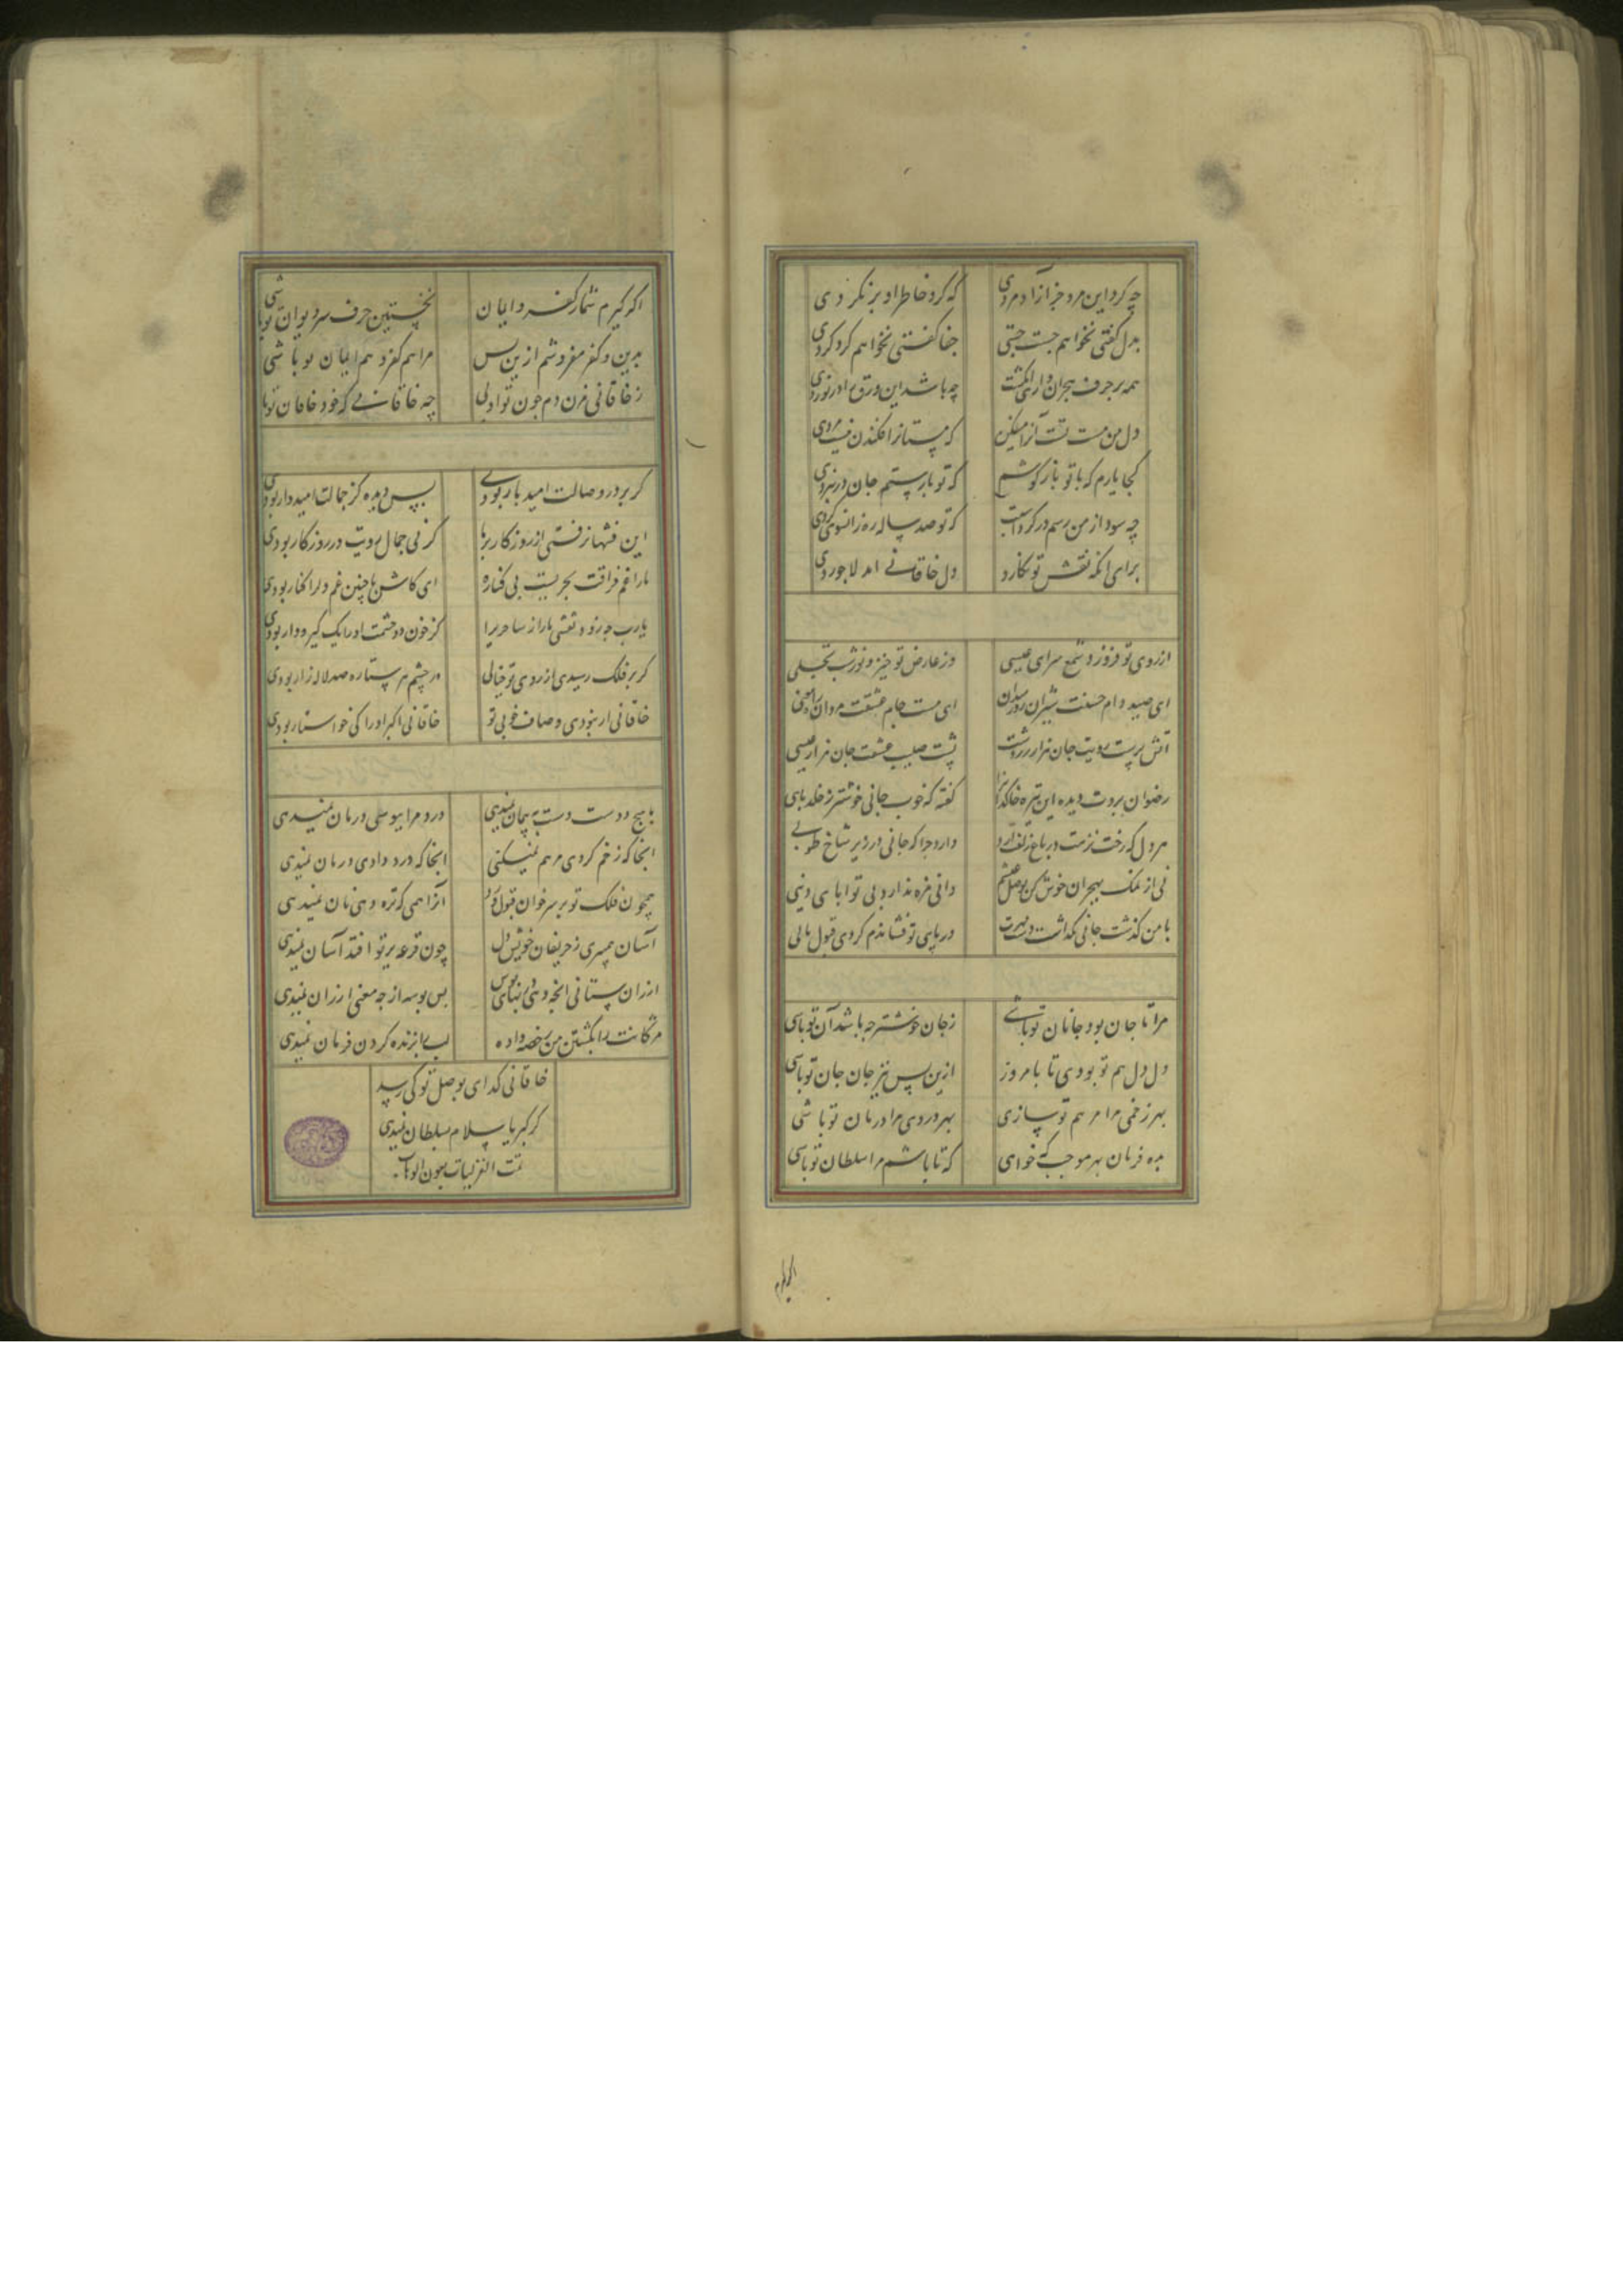 چه کرد این مرد جز آزاد مردی که کرد خاطر او بر نکردی
بدل گفتی نخواهم جست جستی جفا گفتی نخواهم کرد کردی
همه بر حرف هجران داری انگشت چه باشد این ورق را در نوردی
دل من مست تست آنرا میفکن که مستانرا فکندن نیست مردی
کجا یارم که با تو باز کوشم که تو با رستم جان در نبردی
چه سود از من رسم در گردت که تو صد ساله ره زانسوی گردی
برای انکه نقش تو نگارد دل خاقانی امد لاجوردی
از روی تو فروزد شمع سرای عیسی وز عارض تو خیزد نور شب تجلی
ای صید دام حسنت شیران ای مست جام عشقت مردان
آتش پرست رویت جان هزار زردشت پشت صلیب عشقت جان هزار عیسی
رضوان بروت دیده این تیره خاکدانرا گفته که خوب جانی خوشتر ز خلد بای
هر دل که رخت نزهت در باغ زلفت آرد دارد چرا که جانی در زیر شاخ طوبی
دانی مزه ندارد بی تو ابای دینی
با من گذشت جانی در پای تو فشاندم کردی قبول یا نی
مرا تا جان بود جانان تو باشی ز جان خوشتر چه باشد آن تو باشی
دل دل هم تو بودی تا بامروز ازین پس نیز جان جان تو باشی
بهر زخمی مرا مرهم تو سازی بهر دردی مرا درمان تو باشی
بده فرمان بهر موجب که خواهی که تا باشم مرا سلطان تو باشی
اگر گیرم شمار کفر و ایمان نخستین حرف سر دیوان تو باشی
بدین و کفر مفروشم ازین پس مرا هم کفر و هم ایمان تو باشی
ز خاقانی مزن دم چون تو آدلی چه خاقانی که خود خاقان تو باشی
گر بر در وصالت امید بار بودی بس دیده کز جمالت امیدوار بودی
این فتنها نرفتی از روزگار بر ما گر نی جمال رویت در روزگار بودی
ما را غم فراقت بحریست بی کناره ای کاش با چنین غم دل را کنار بودی
گر بر فلک رسیدی از روی تو خیالی در چشم هر ستاره صد لاله زار بودی
خاقانی ار نبودی وصاف خوبی تو خاقانی اکبر او را کی خواستار بودی
با هیچ دوست دست به پیمان نمیدهی درد مرا ببوسی درمان نمیدهی
انجا که زخم کردی مرهم نمیکنی انجا که درد دادی درمان نمیدهی
همچون فلک تو بر سر خوان قبول و رد آنرا همی که تره دهی نان نمیدهی
آسان همیبری ز حریفان خویش دل چون قرعه بر تو افتد آسان نمیدهی
ارزان ستانی انچه دهی بس بوسه از چه معنی ارزان نمیدهی
مژگانت را بکشتن من رخصه داده لب را بزنده کردن فرمان نمیدهی
خاقانی گدای بوصل تو کی رسد
کز کبریا سلام بسلطان نمیدهی
تمت الغزلیات بعون الوهاب